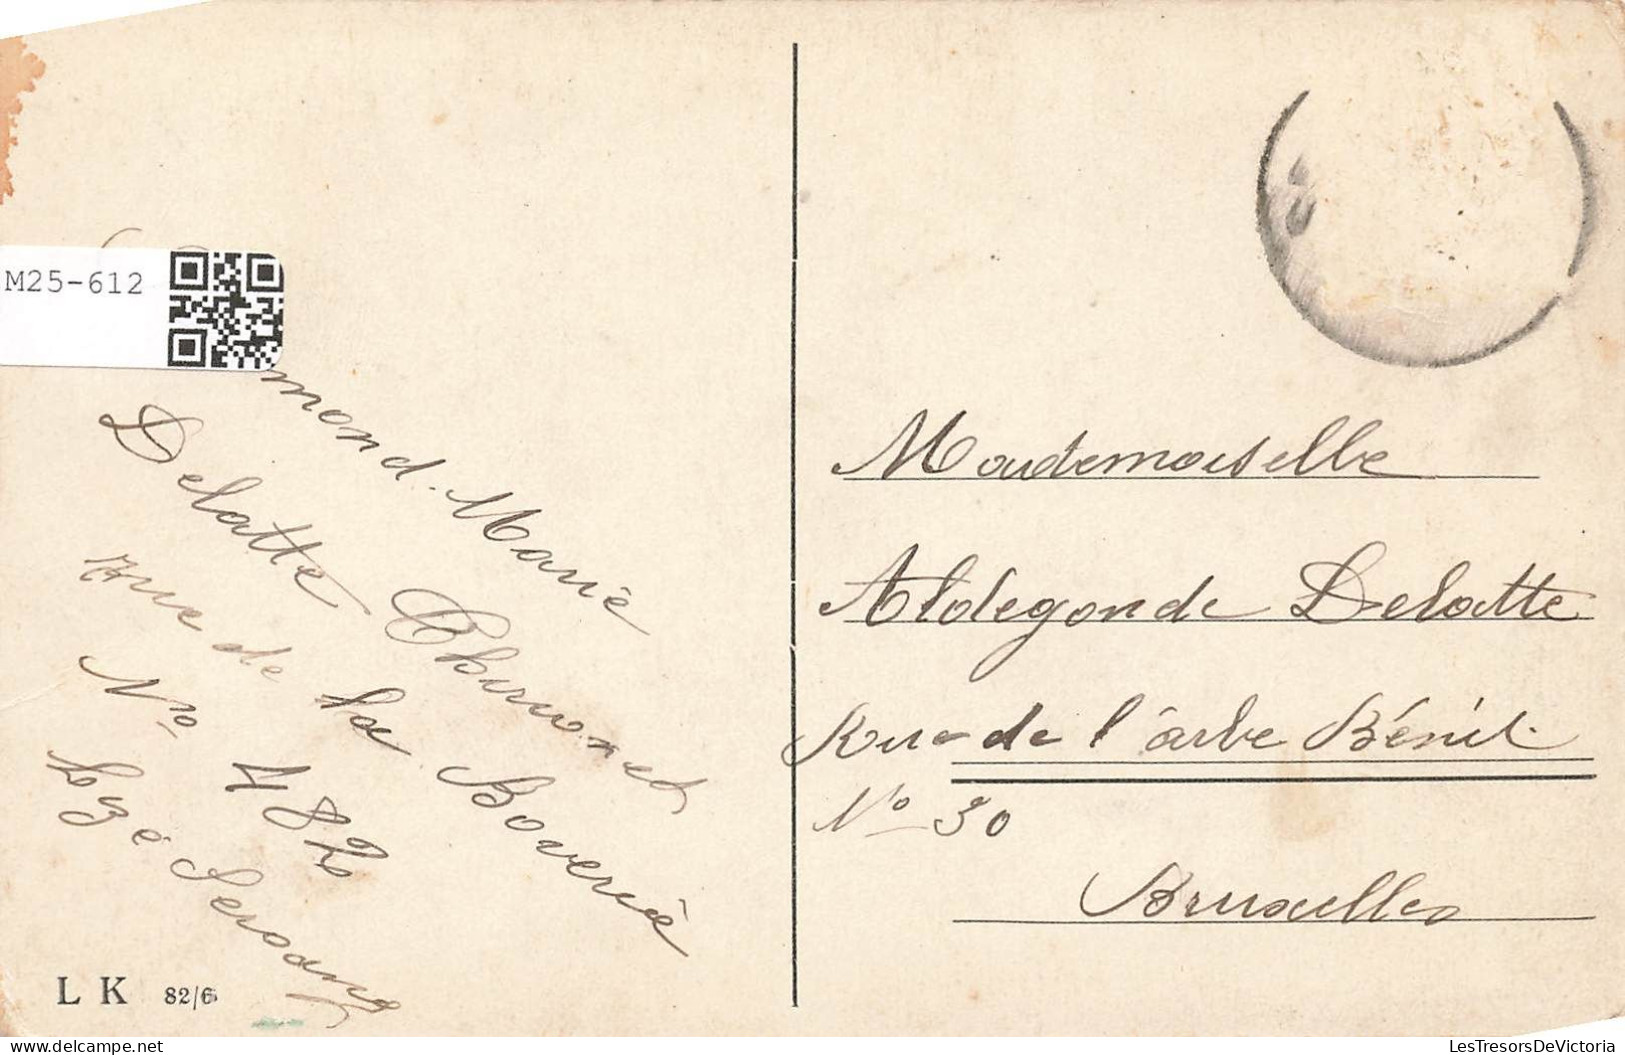 M25-612
mond. Marie
Delatte
Rue de la Boverie
No 482
Lzé Seraing
L K 82/6
Mademoiselle
Aldegonde Delatte
Rue de l'arbe Bénit
No 30
Bruxelles
LesTresorsDeVictoria